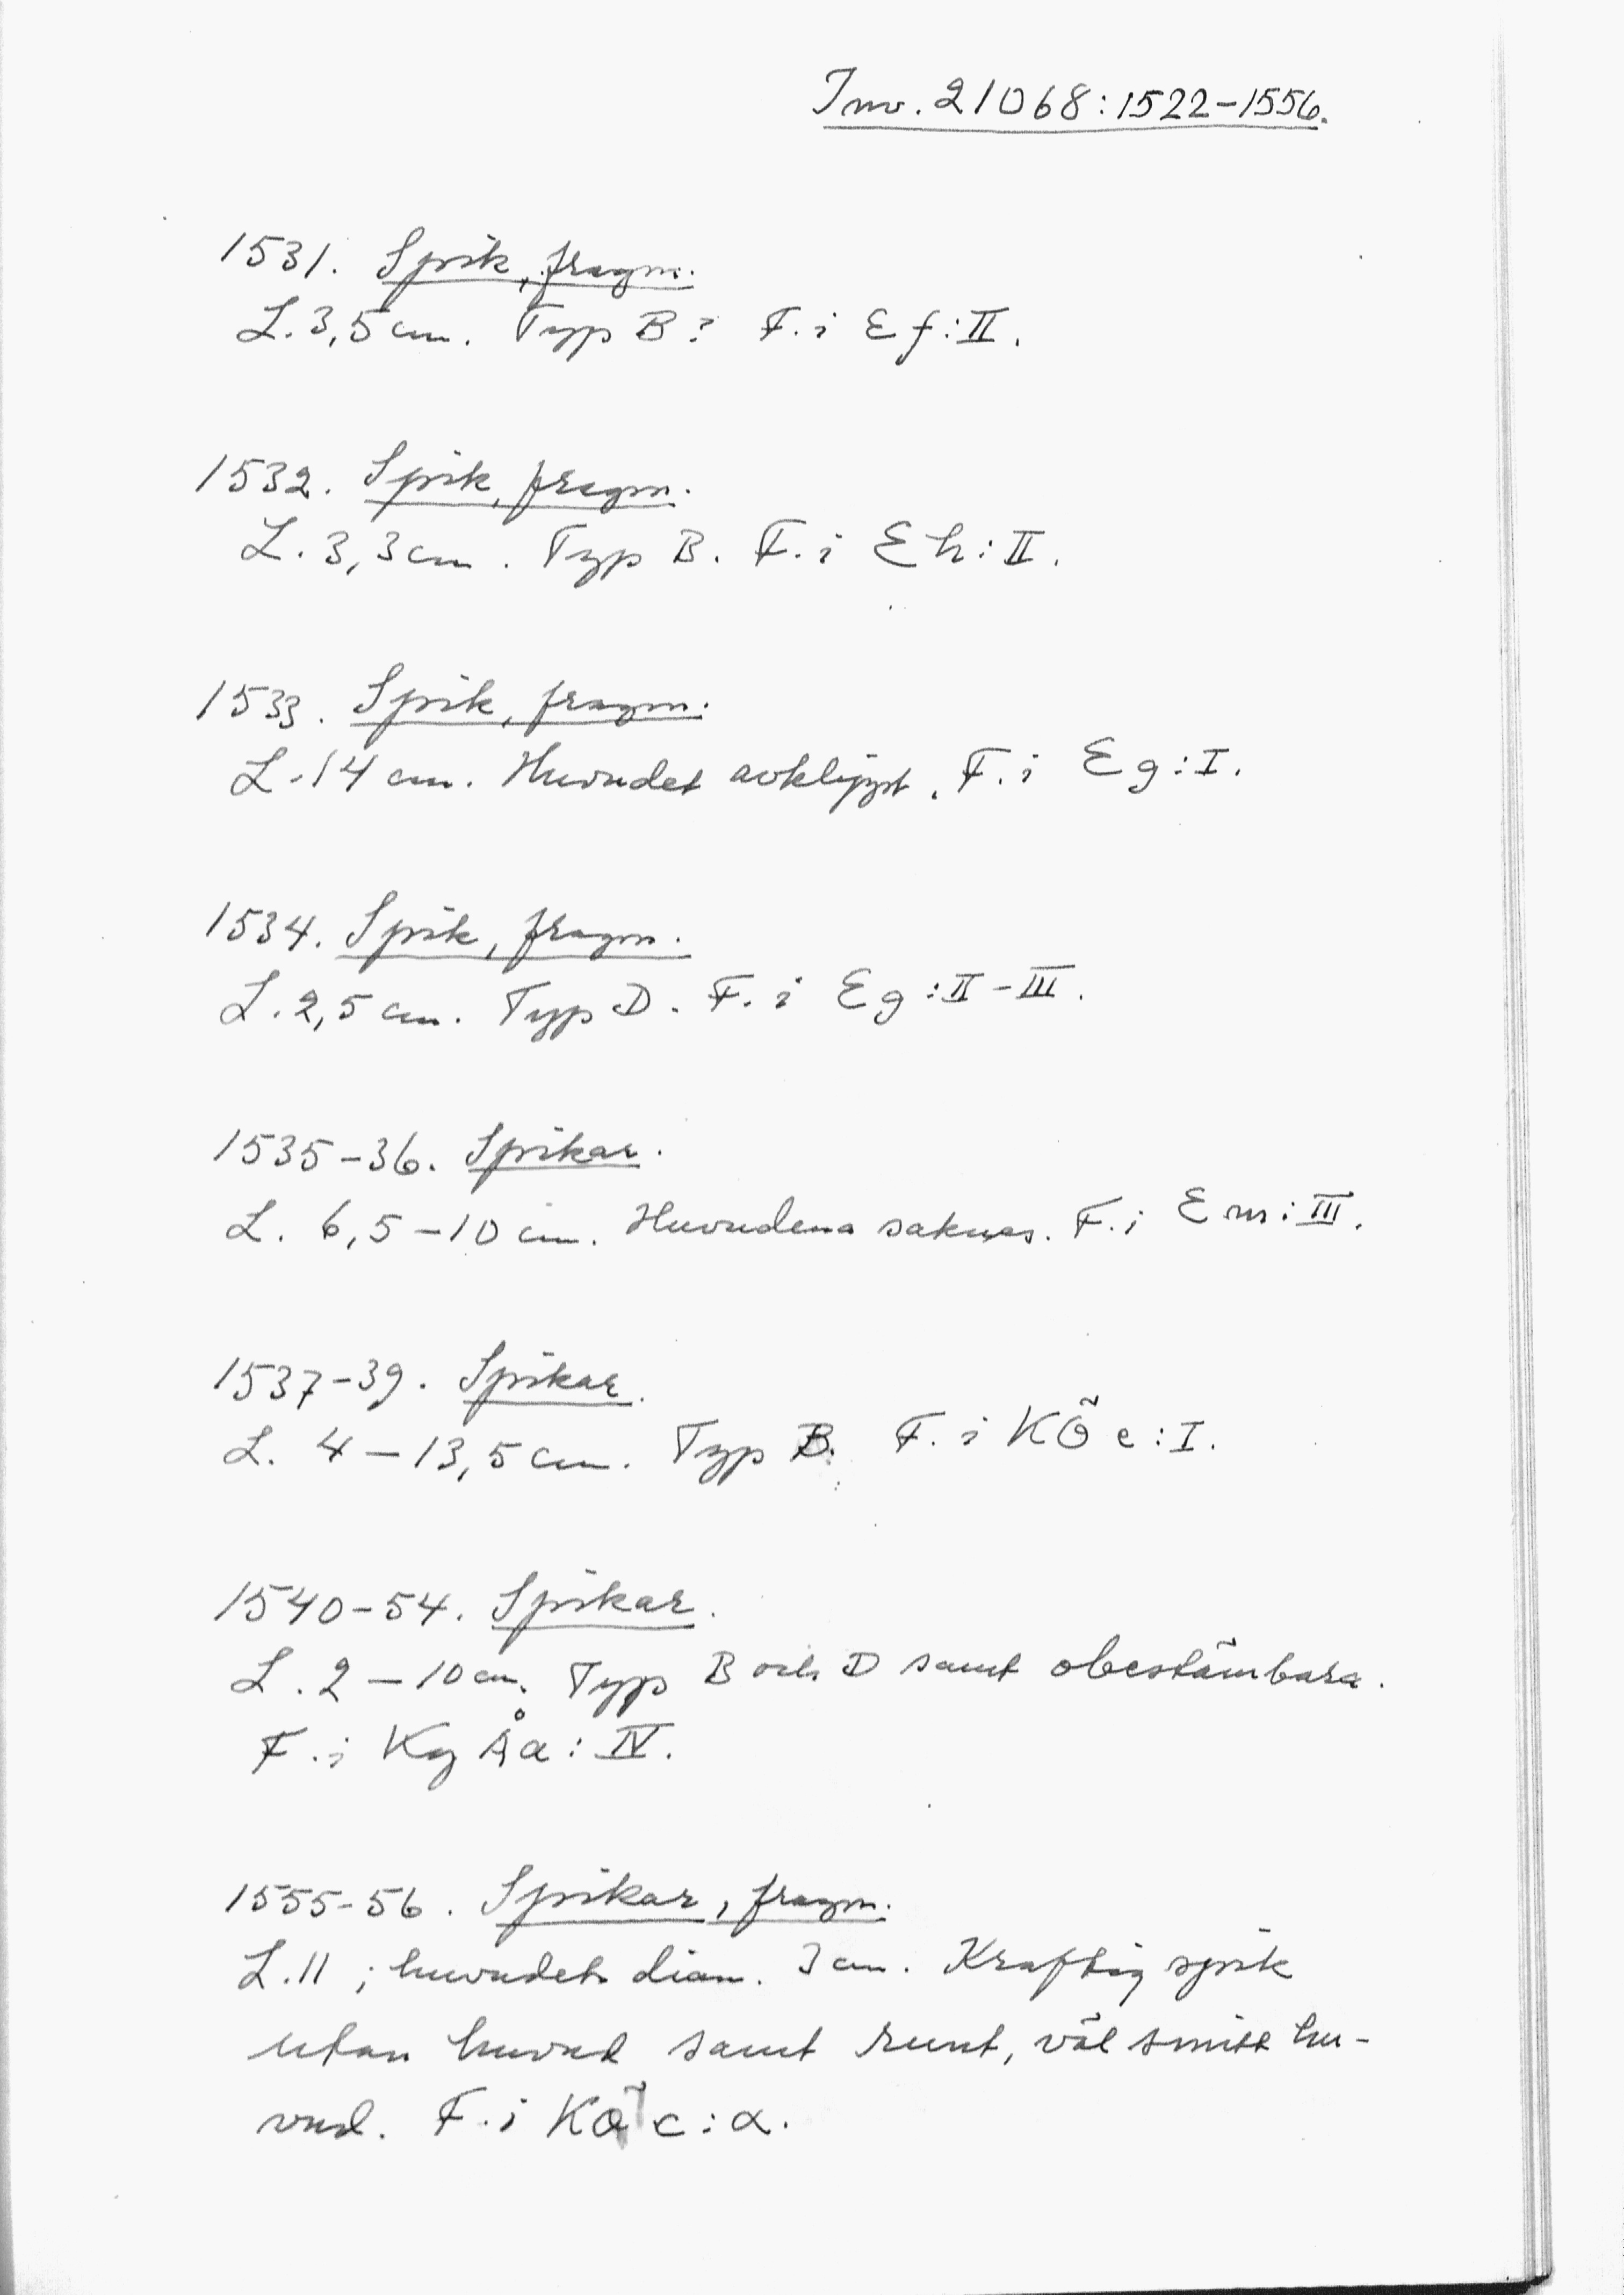 Inv. 21068:1522-1556.
1531. Spik, fragm.
L. 3,5 cm. Typ B? F. i Ef:II.
1532. Spik, fragm.
L. 3,3 cm. Typ B. F. i Eh:II.
1533. Spik, fragm.
L. 14 cm. Huvudet avklippt. F. i Eg:I.
1534. Spik, fragm.
L. 2,5 cm. Typ D. F. i Eg:II-III.
1535-36. Spikar.
L. 6,5-10 cm. Huvudena saknas. F. i Em:III.
1537-39. Spikar.
L. 4-13,5 cm. Typ B. F. i KÖe:I.
1540-54. Spikar.
L. 2-10 cm. Typ B och D samt obestämbara.
F. i Kg Åa:IV.
1555-56. Spikar, fragm.
L. 11; huvudets diam. 3 cm. Kraftig spik
utan huvud samt runt, väl smitt hu-
vud. F. i KÖc:α.